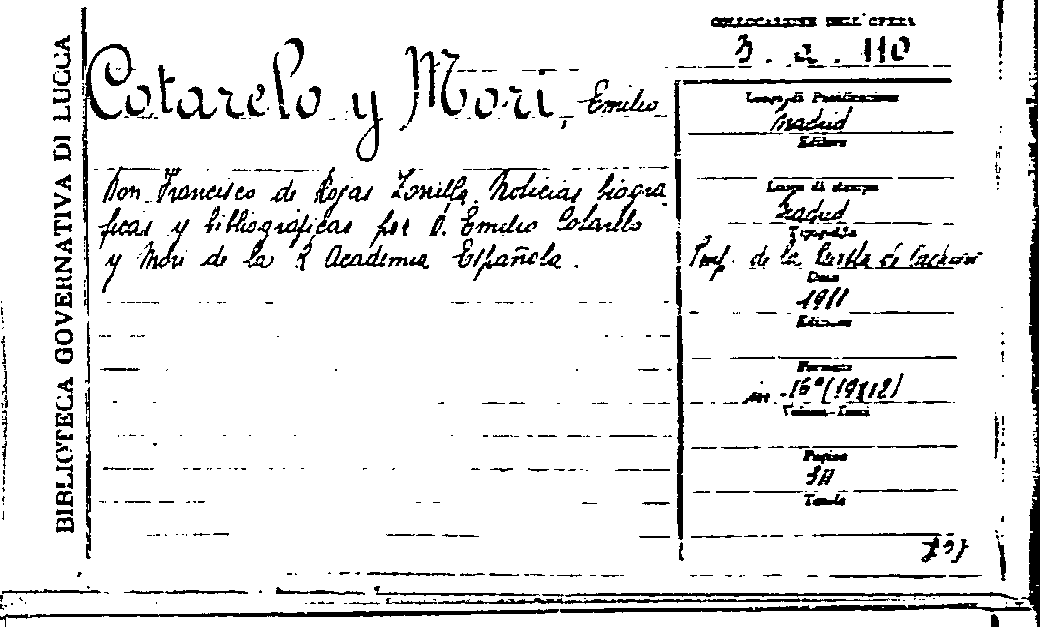 BIBLIOTECA GOVERNATIVA DI LUCCA
COLLOCAZIONE DELL'OPERA
3. a. 110
Cotarelo y Mori, Emilio
Don Francisco de Rojas Zorrilla. Noticias biográ
ficas y bibliográficas por D. Emilio Cotarelo
y Mori de la R Academia Española.
Luogo di Pubblicazione
Madrid
Editore
Luogo di stampa
Madrid
Tipografia
de la
Data
1911
Edizione
Formato
in -16° (19x12)
Pagine
Tavole